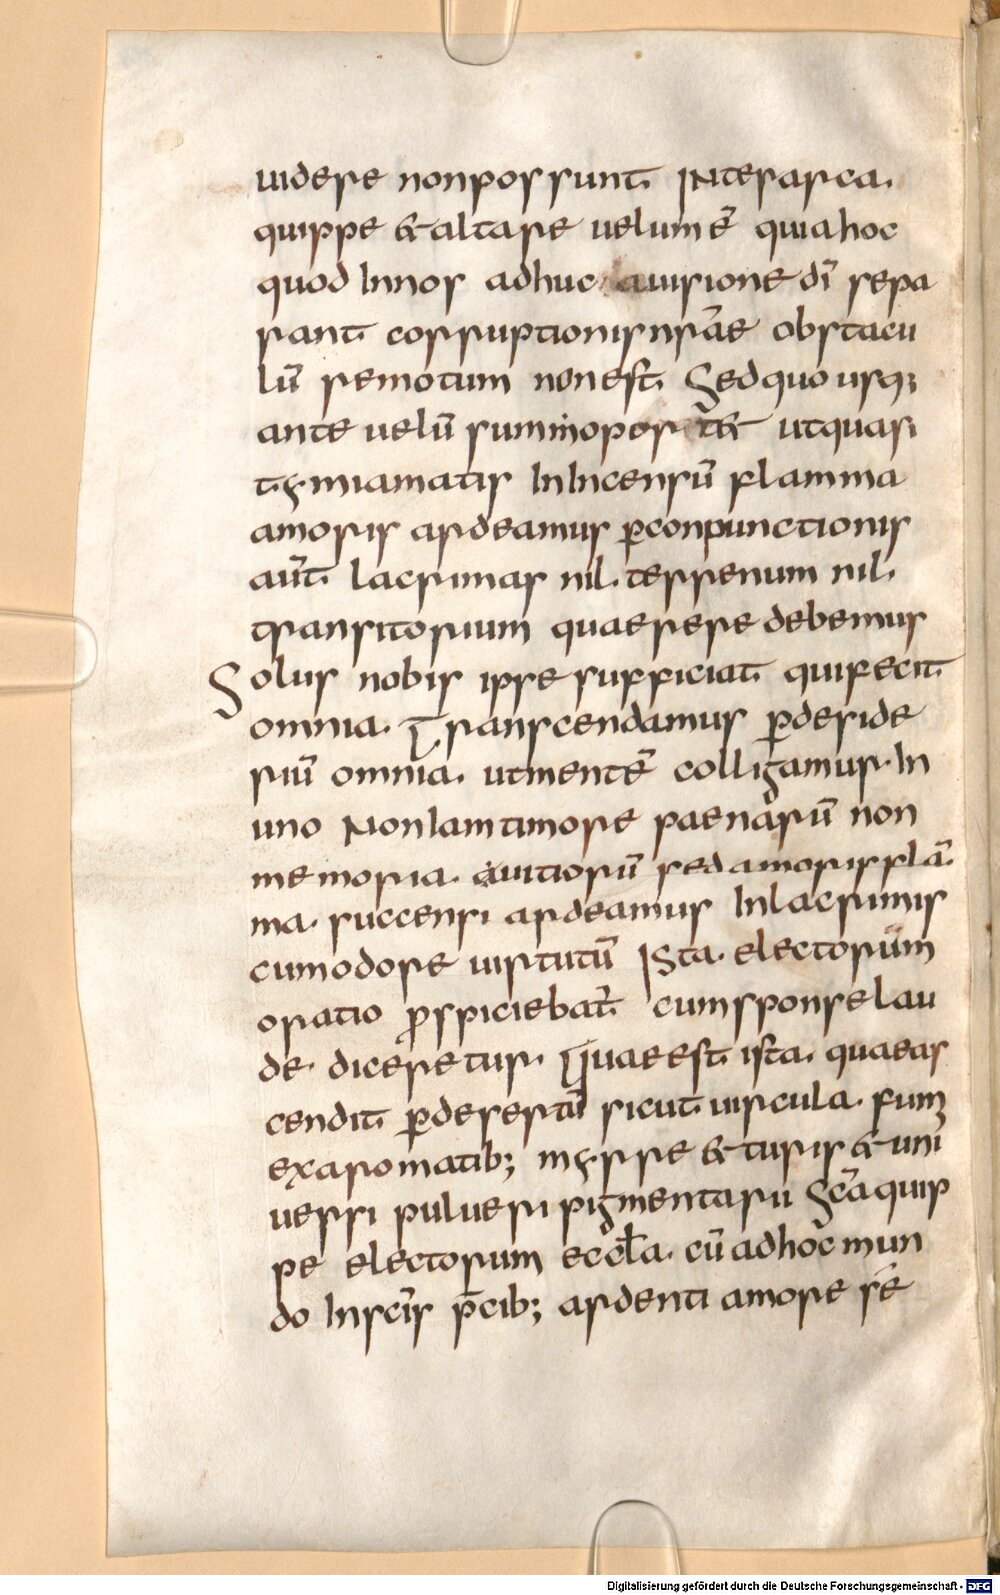 uidere nonpossunt. INterarca.
quippe & altare uelum ē quia hoc
quod Innos adhuc auisione dī sepa
rant corruptionis nrāe obstacu
lū remotum non est. Sed quo usq;
ante uelū summopor t& utquasi
tymiamatis InIncensū flamma
amoris ardeamus p̄conpunctionis
aūt lacrimas nil. terrenum nil.
transitorium quaerere debemus
Solus nobis ipse sufficiat quifecit
omnia. Transcendamus p̄deside
riū omnia. utmentē colligamus. In
uno Noniamtimore paenarū non
memoria. auitiorū sed amoris flā.
ma. succensi ardeamus Inlacrimis
cumodore uirtutū Ista. electorum
oratio p̄spiciebat̄ cumsponse lau
de. diceretur. Quae est ista. quaeas
cendit p̄desertū sicut uircula. fumi
exaromatib; myrre & turis & uni
uersi pulueri pigmentarii Scā quip
pe electorum eccła. cū adhoc mun
do Inscīs p̄cib; ardenti amore sē
Digitalisierung gefördert durch die Deutsche Forschungsgemeinschaft - DFG